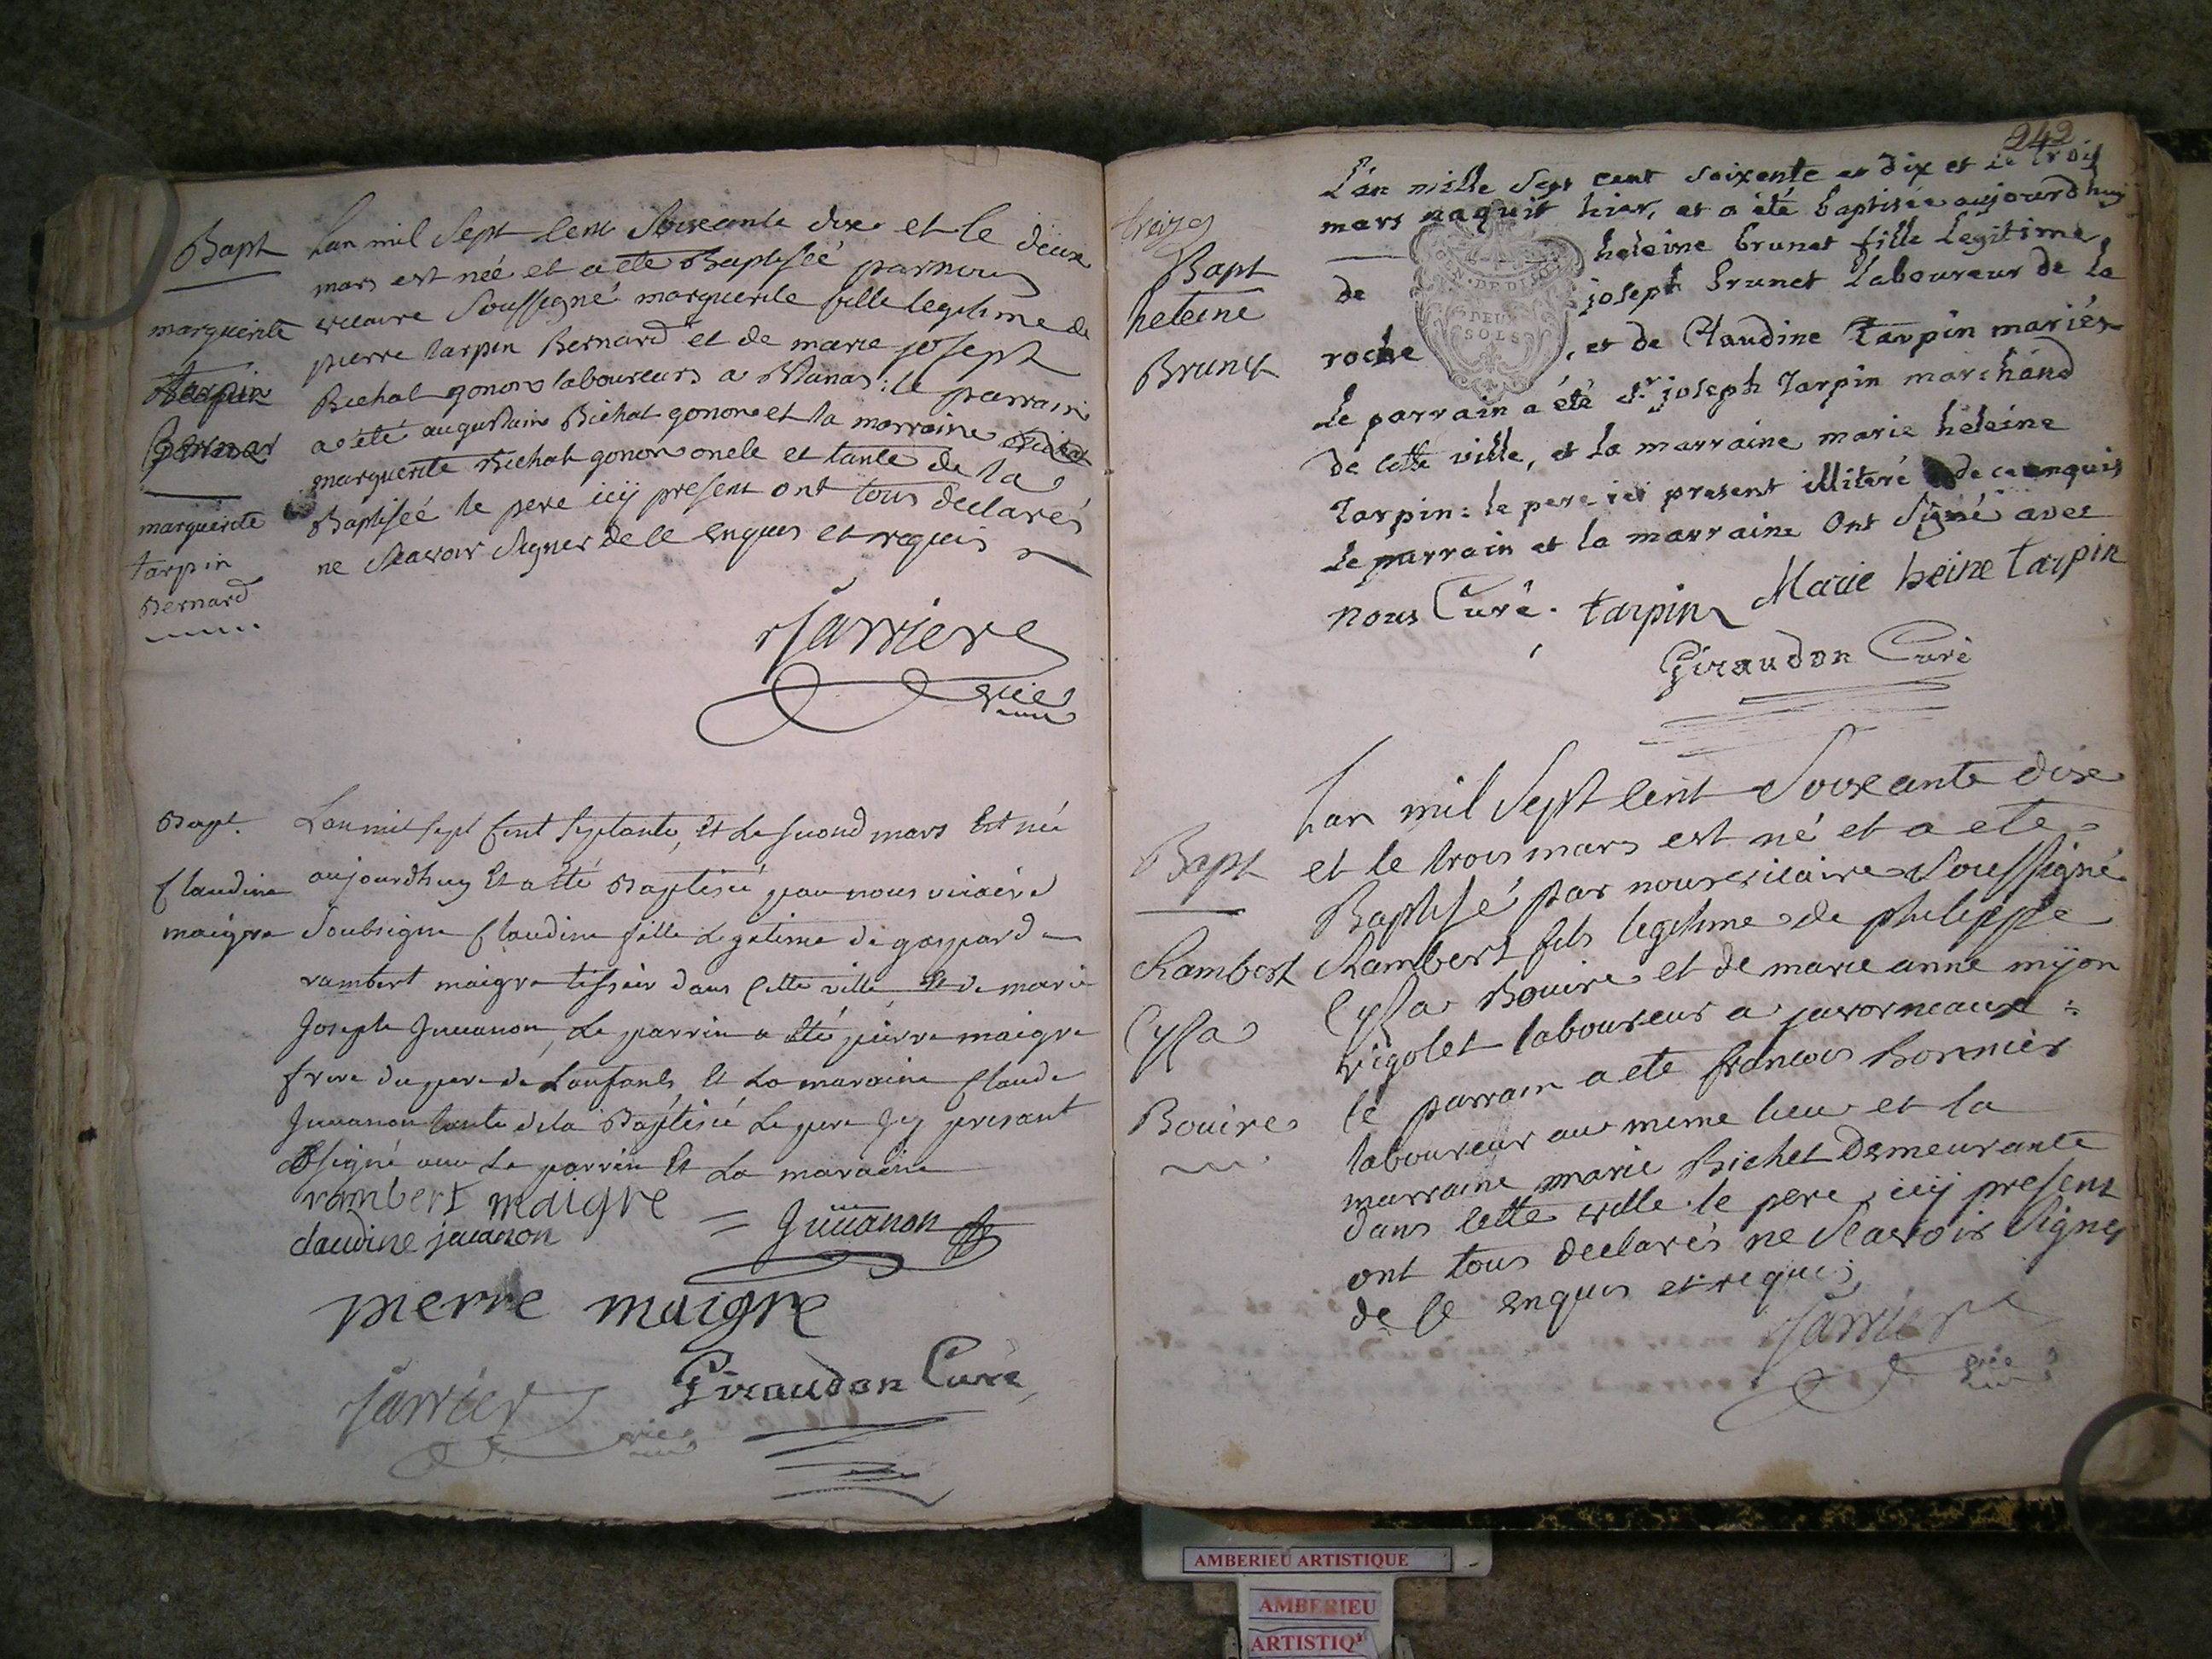 Bapt
marguerite
tarpin
Bernar
marguerite
tarpin
Bernard
Lan mil Sept Cent Soixante dix et le deux
mars est née et a ete Baptisée par nous
vicaire Soussigné marguerite fille legitime de
pierre tarpin Bernard et de marie joseph
Bichat gonon laboureurs a : le parrain
a été augustain Bichat gonon et la marraine
marguerite Bichat gonon oncle et tante de la
Baptisée le pere icy present ont tous declarés
ne Scavoir Signer de ce enquis et requis
Sarriere
vic
Bapt.
Claudine
maigre
Lan mil sept Cent Septante, Et Le second mars Est née
aujourdhuy Et a Eté Baptisée par nous vicaire
Soubsigne Claudine fille Legetime de gaspard
rambert maigre tissier dans Cette ville Et de marie
Joseph Juuanon, Le parrin a Eté pierre maigre
frere du pere de L'enfant, Et La maraine Claude
Juuanon tante de la Baptisée Le pere Icy presant
signé avec Le parrin Et La maraine
rambert maigre
claudine jauanon = Juuanon
pierre maigre
Sarriere vic
Giraudon Curé
242
treize
Bapt
heleine
Brunet
L'an mille Sept cent soixente et dix et le trois
mars naquit hier, et a été baptisée aujourdhuy
heleine brunet fille legitime
de joseph brunet laboureur de la
roche, et de Claudine Tarpin mariés
GEN. DE DIJON
DEUX
SOLS
Le parrain a été Sr. joseph Tarpin marchand
de cette ville, et la marraine marie heleine
Tarpin: le pere ici present illiteré de ce enquis
Le parrain et la marraine ont Signé avec
nous Curé. tarpin Marie heine tarpin
Giraudon Curé
Bapt
Rambert
Cyssa
Bouire
Lan mil Sept Cent Soixante dix
et le trois mars est né et a ete
Baptisé par nous vicaire Soussigné
Rambert fils legitime de philippe
Cyssa Bouire et de marie anne mÿon
rigolet laboureur a javornaux :
le parrain a ete francois bonnier
laboureur au meme lieu et la
marraine marie Bichet Demeurante
dans cette ville. le pere icy present
ont tous declarés ne Scavoir Signer
de ce enquis et requis
Sarriere
vic
AMBERIEU ARTISTIQUE
AMBERIEU
ARTISTIQ